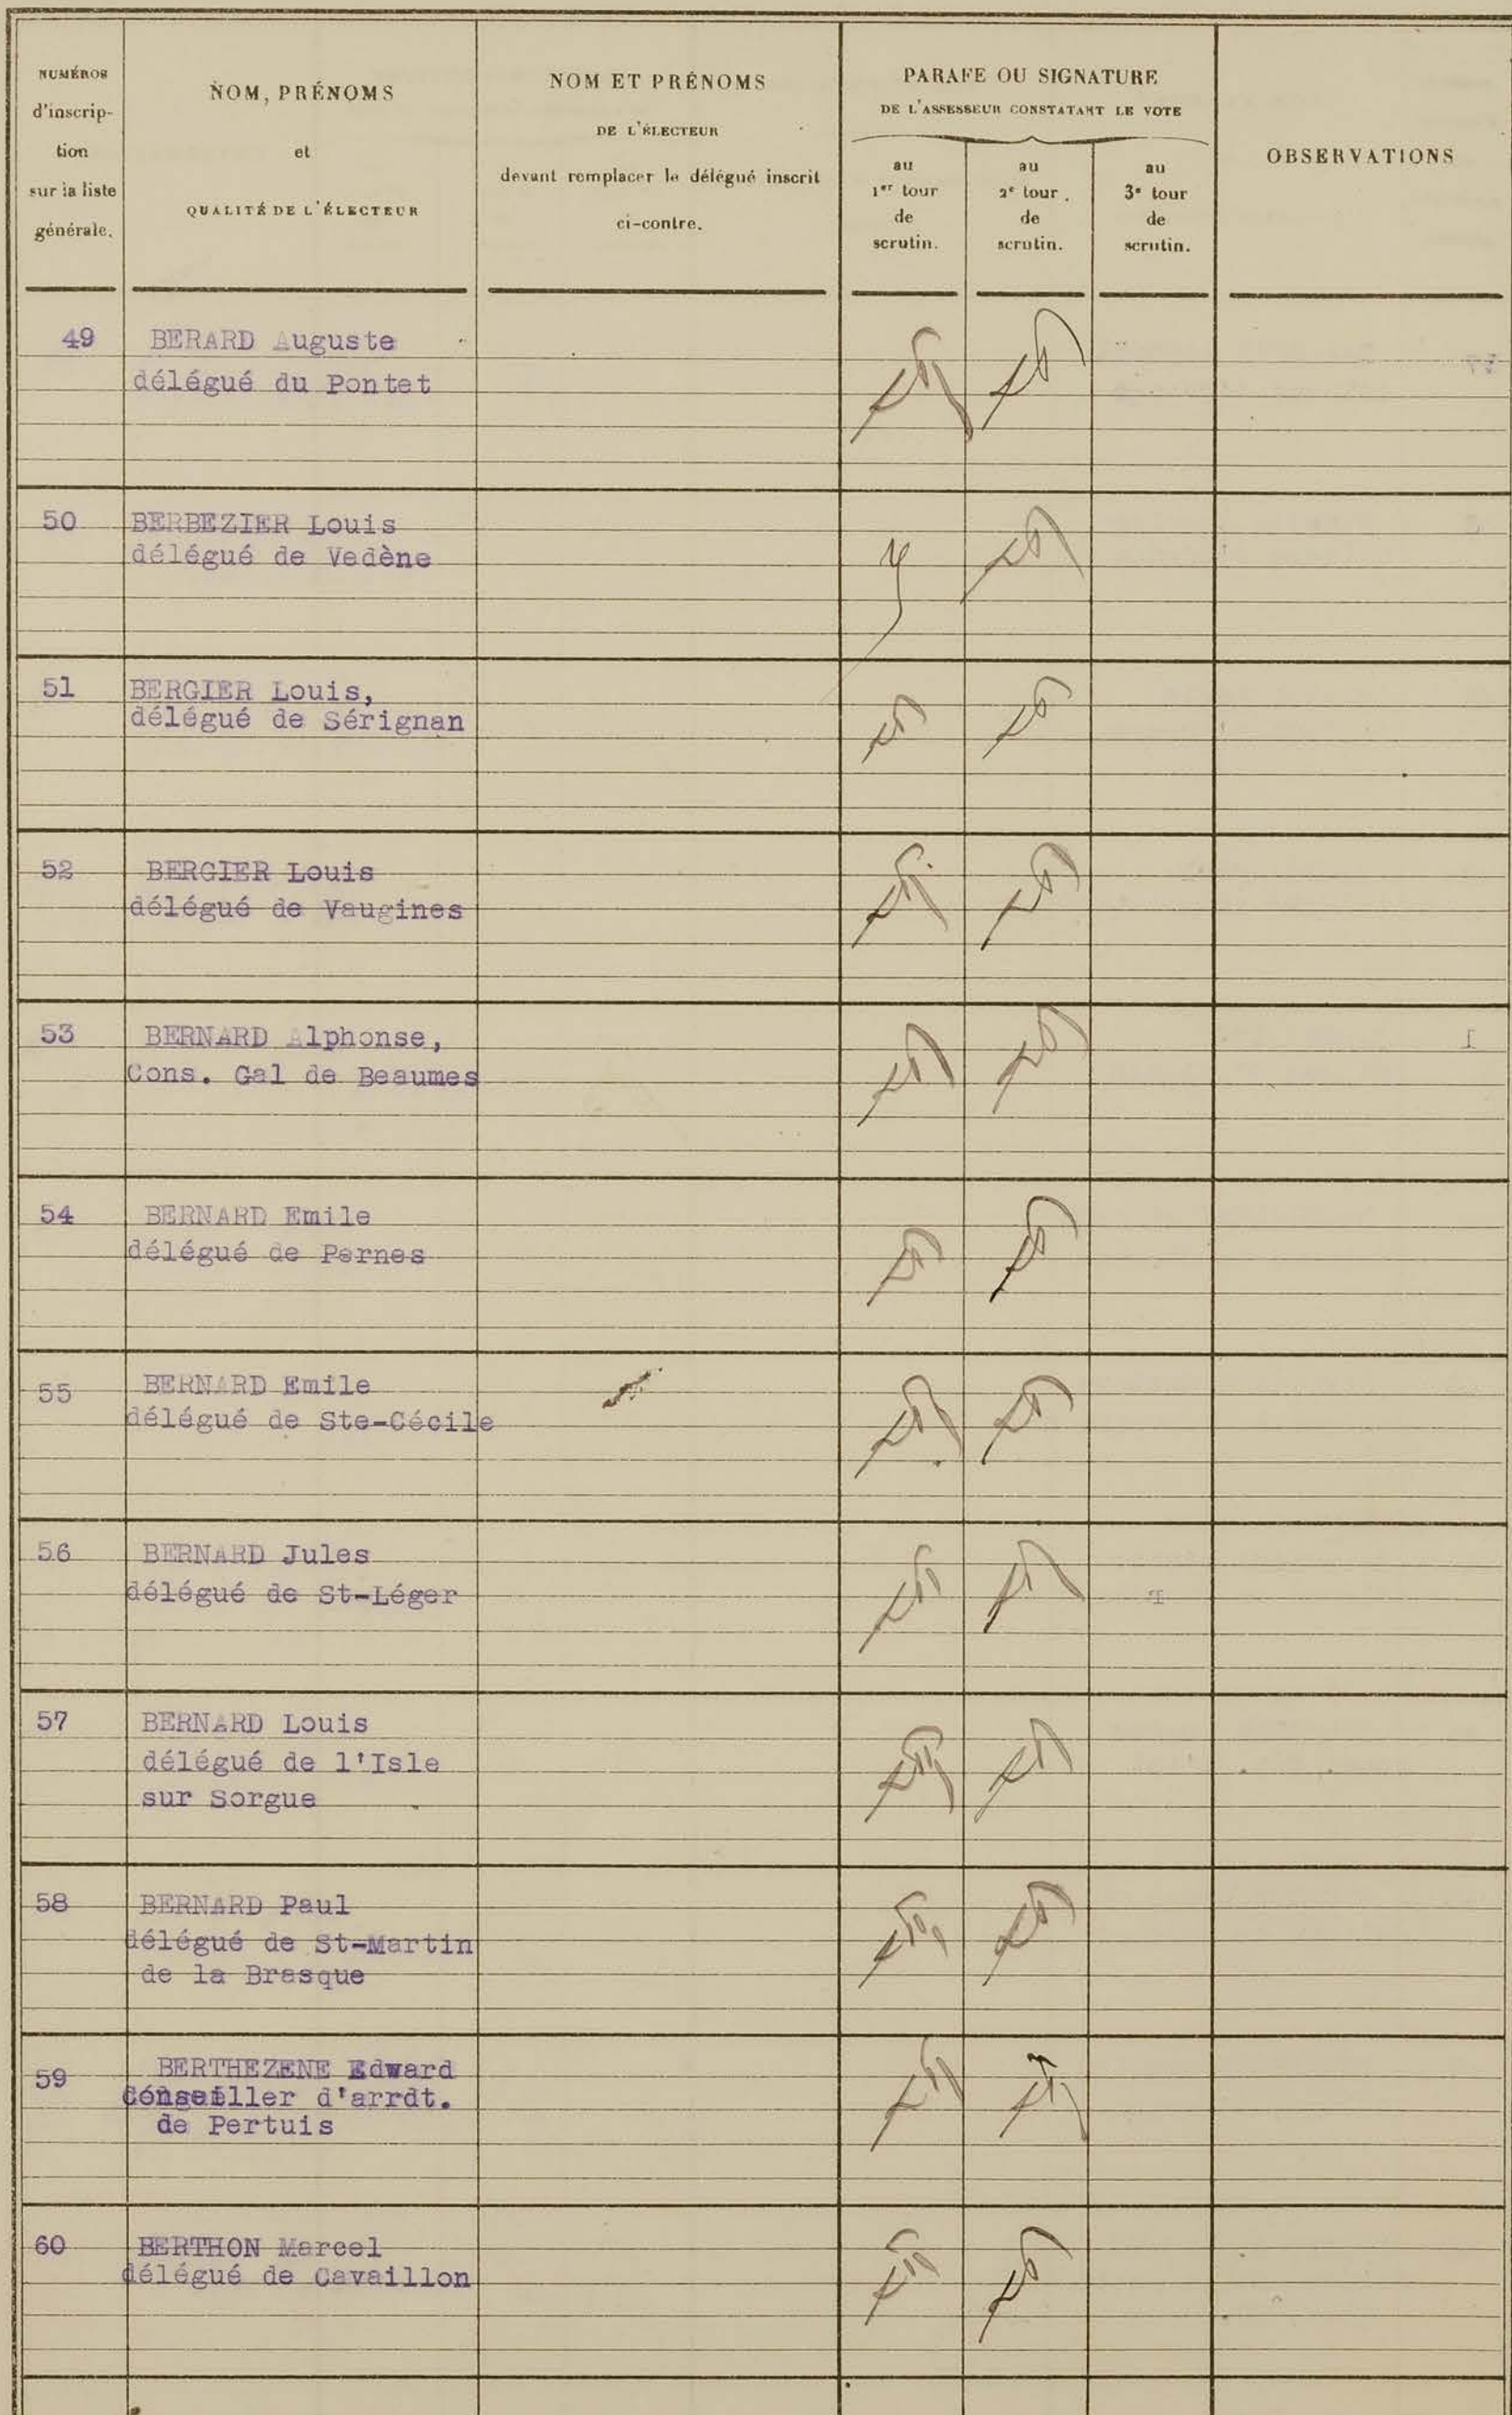 NUMÉROS
d'inscrip-
tion
sur la liste
générale.
NOM, PRÉNOMS
et
QUALITÉ DE L'ÉLECTEUR
NOM ET PRÉNOMS
DE L'ÉLECTEUR
devant remplacer le délégué inscrit
ci-contre.
PARAFE OU SIGNATURE
DE L'ASSESSEUR CONSTATANT LE VOTE
au
1er tour
de
scrutin.
au
2e tour.
de
scrutin.
au
3e tour
de
scrutin.
OBSERVATIONS
49 BERARD Auguste
délégué du Pontet
50 BERBEZIER Louis
délégué de Vedène
51 BERGIER Louis,
délégué de Sérignan
52 BERGIER Louis
délégué de Vaugines
53 BERNARD Alphonse,
Cons. Gal de Beaumes
54 BERNARD Emile
délégué de Pernes
55 BERNARD Emile
délégué de Ste-Cécile
56 BERNARD Jules
délégué de St-Léger
57 BERNARD Louis
délégué de l'Isle
sur Sorgue
58 BERNARD Paul
délégué de St-Martin
de la Brasque
59 BERTHEZENE Edward
Conseiller d'arrdt.
de Pertuis
60 BERTHON Marcel
délégué de Cavaillon